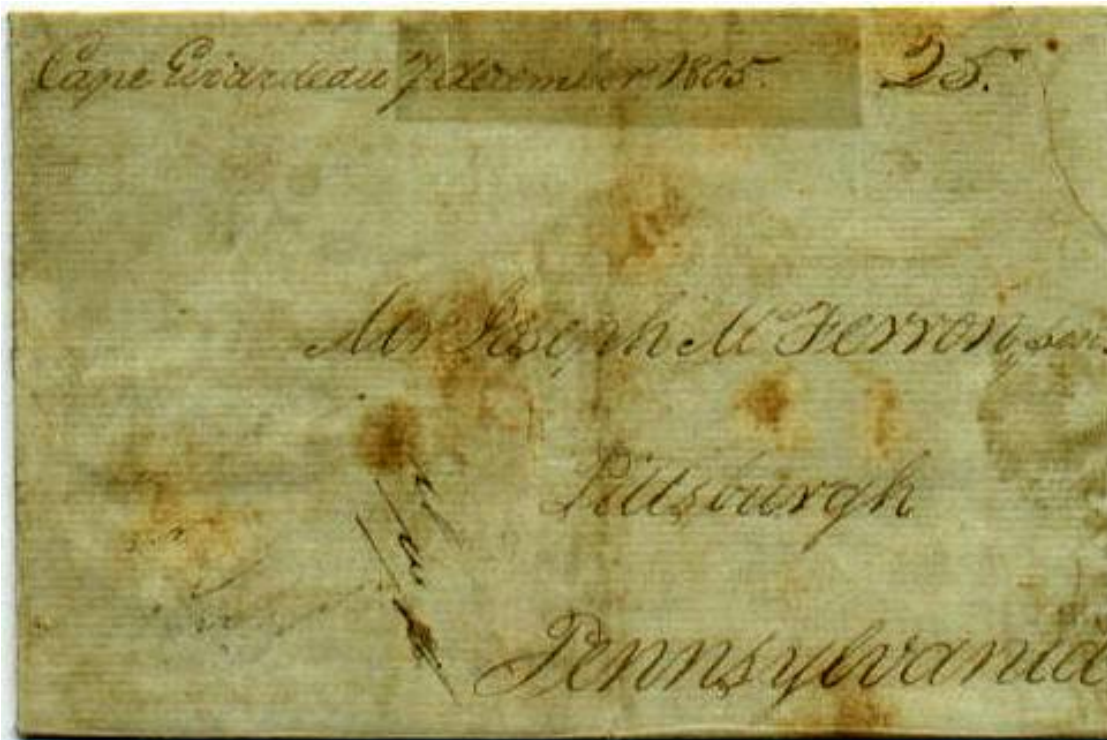 Cape Girardeau 7 december 1805. 25.
Mr Joseph McFerron, sen.
Pittsburgh
Pennsylvania